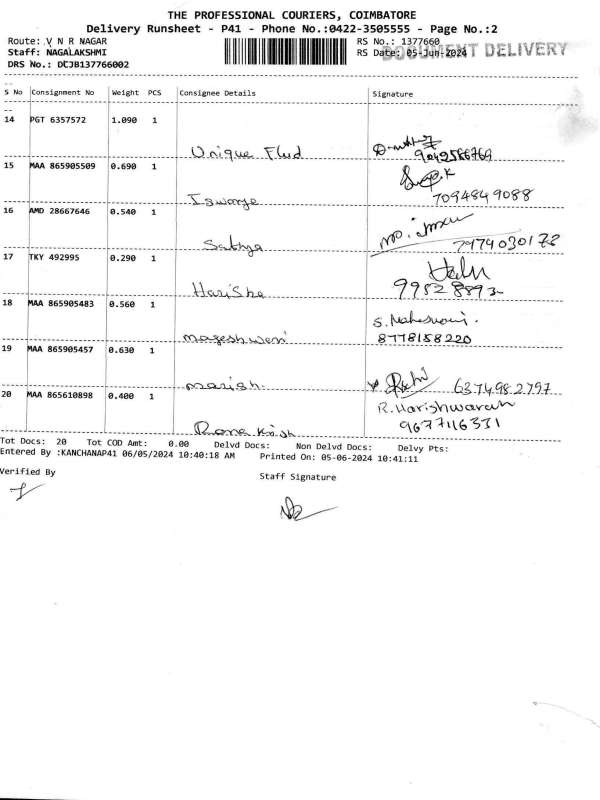 THE PROFESSIONAL COURIERS, COIMBATORE
Delivery Runsheet - P41 - Phone No.:0422-3505555 - Page No.:2
Route: V N R NAGAR RS No.: 1377660
Staff: NAGALAKSHMI RS Date: 05-Jun-2024 DOCUMENT DELIVERY
DRS No.: DCJB137766002
S No Consignment No Weight PCS Consignee Details Signature
14 PGT 6357572 1.090 1
Unique Flud
15 MAA 865905509 0.690 1
7094849088
16 AMD 28667646 0.540 1
Sathya
17 TKY 492995 0.290 1
Harisha
18 MAA 865905483 0.560 1
S. Maheswari.
mageshweri 8778158220
19 MAA 865905457 0.630 1
marish 6374982797
20 MAA 865610898 0.400 1 R. Harishwaran
9677116331
Tot Docs: 20 Tot COD Amt: 0.00 Delvd Docs: Non Delvd Docs: Delvy Pts:
Entered By :KANCHANAP41 06/05/2024 10:40:18 AM Printed On: 05-06-2024 10:41:11
Verified By Staff Signature